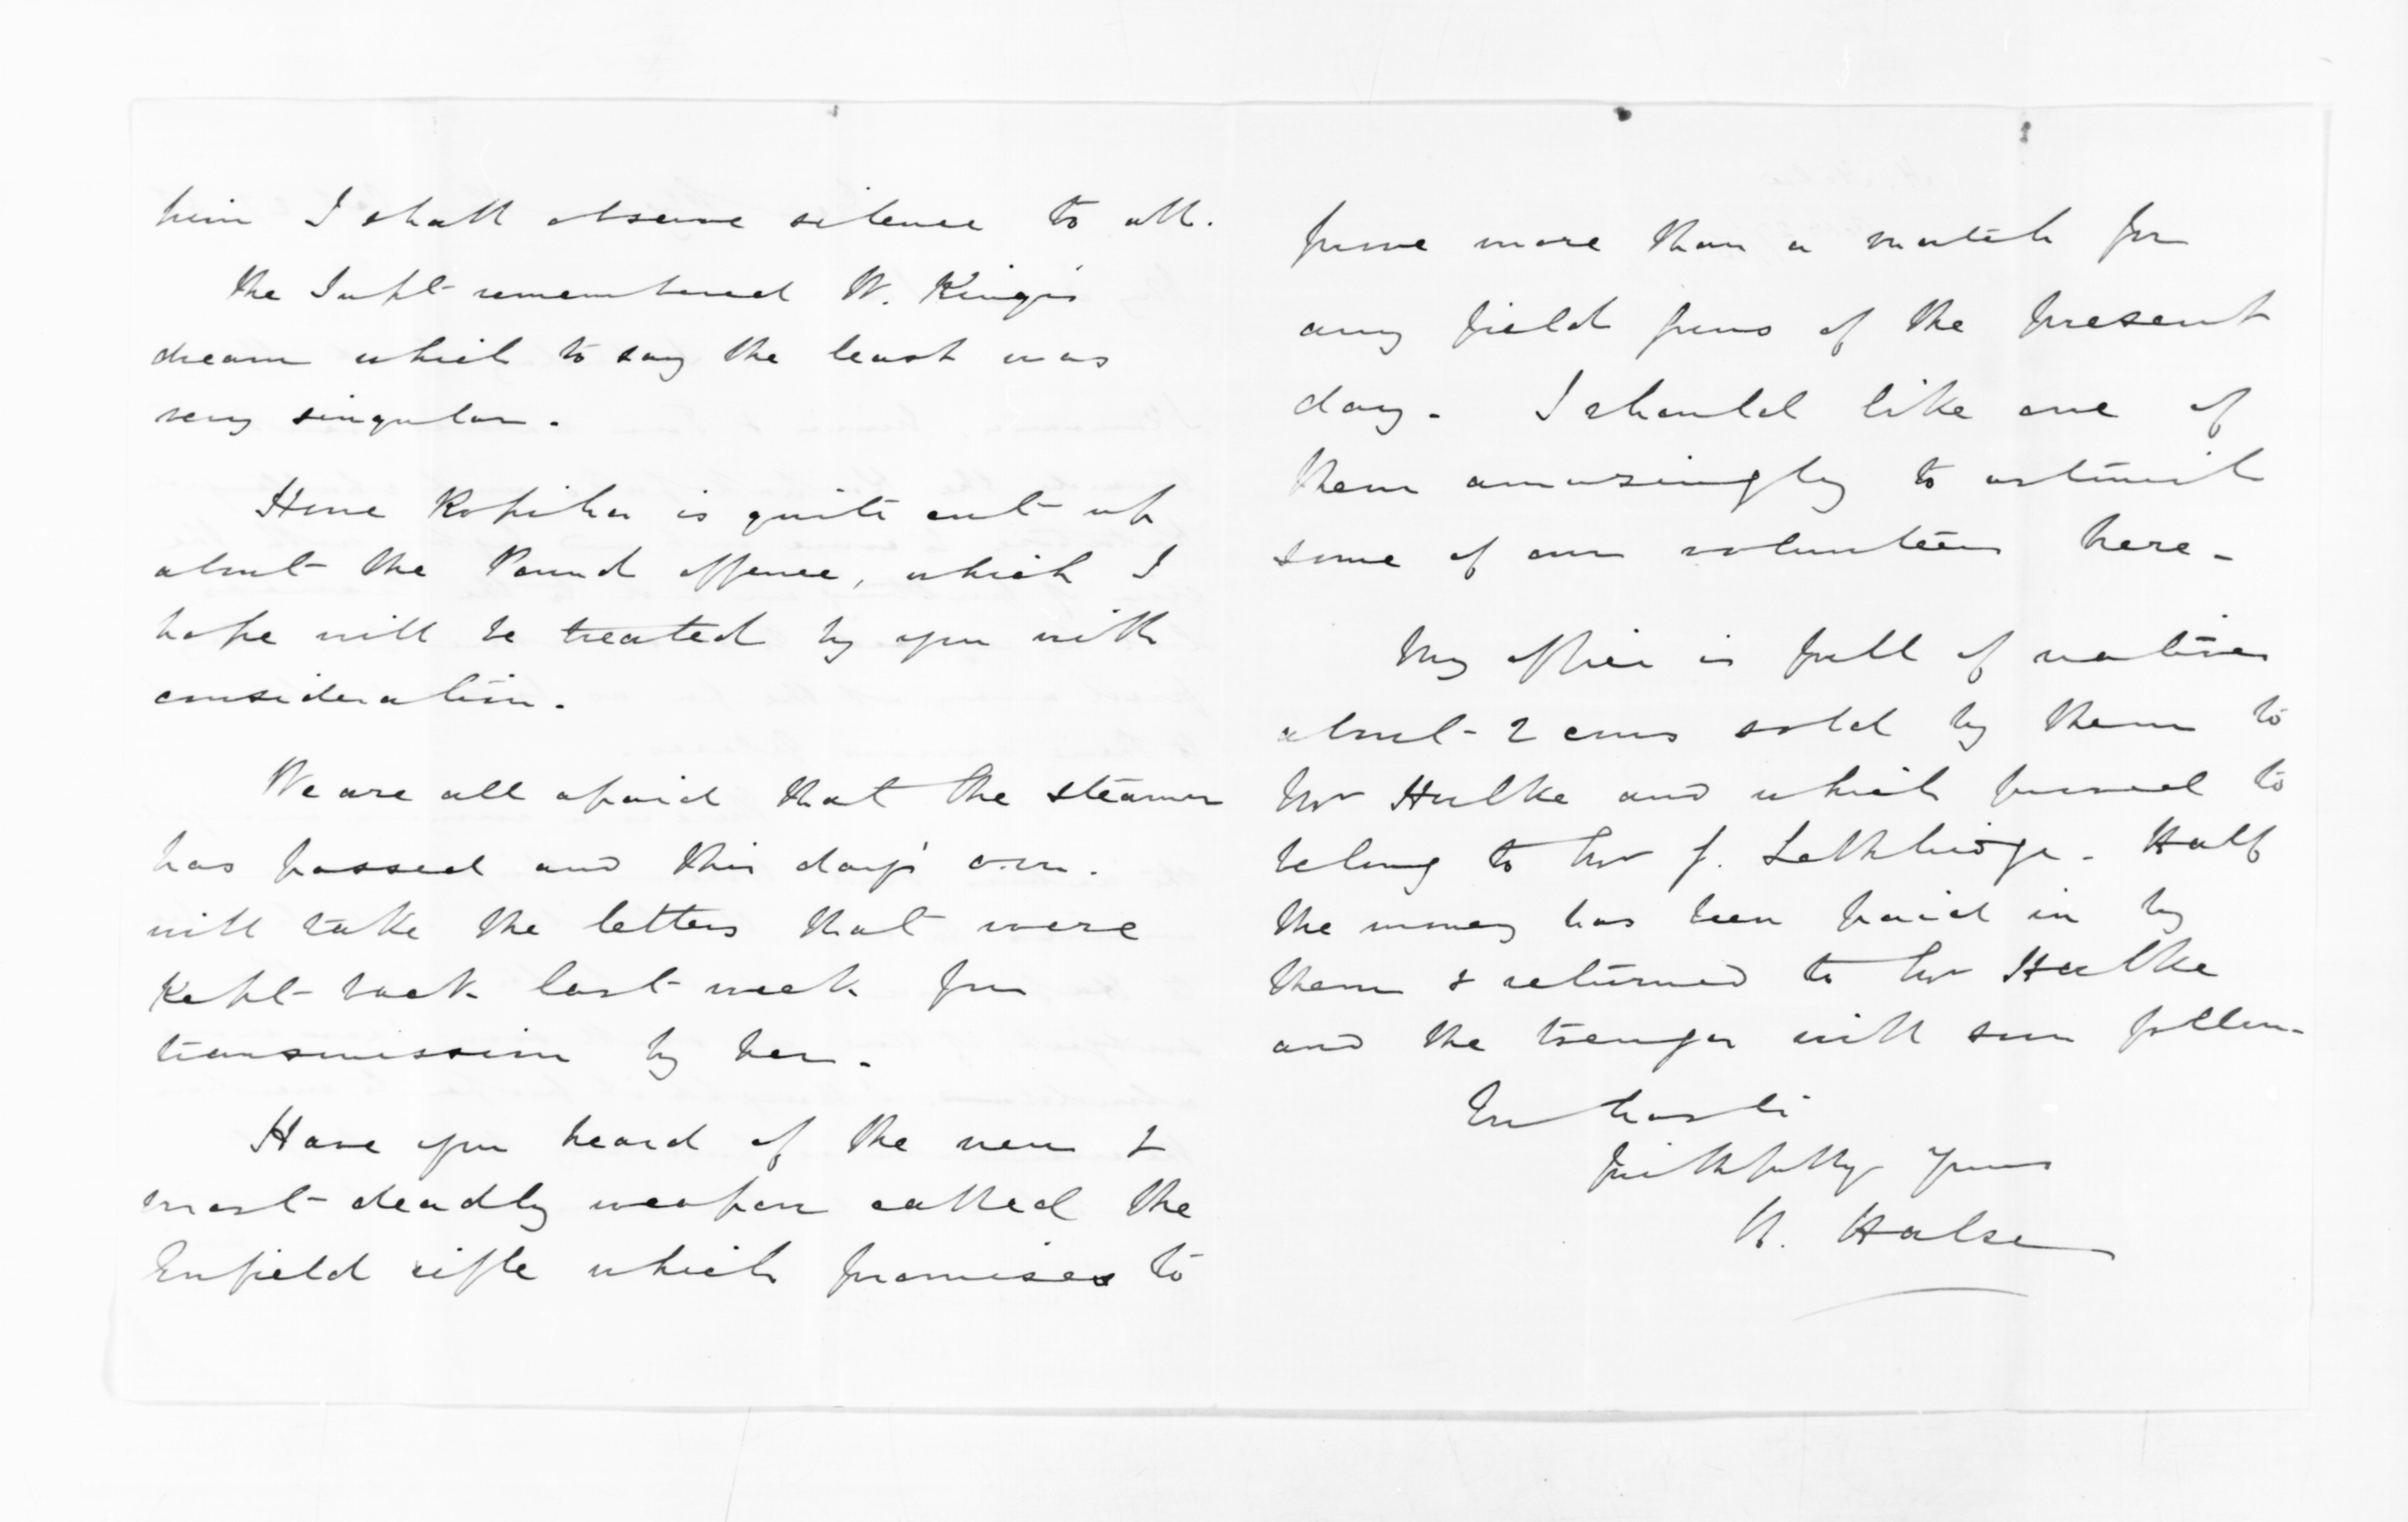 him I shall observe silence to all.
The Supt remembered W. King's
dream which to say the least was
very singular.
Hone Ropiha is quite cut up
about the Pound offence, which I
hope will be treated by you with
consideration.
We are all afraid that the steamer
has passed and this day's o.m.
will take the letters that were
kept back last week for
transmission by her.
Have you heard of the new &
most deadly weapon called the
Enfield rifle which promises to
prove more than a match for
any field guns of the present
day. I should like one of
them amazingly to astonish
some of our volunteers here.
My office is full of natives
about 2 cows sold by them to
Mr Hulke and which proved to
belong to Mr J. Lethbridge. Half
the money has been paid in by
them & returned to Mr Hulke
and the toenga will soon follow.
In haste
Faithfully yours
H. Halse